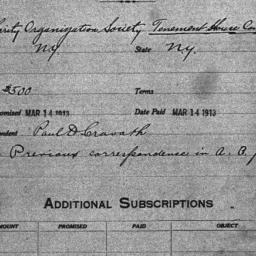 Organization Society Tenement House
N.Y. State N.Y.
$500 Terms
MAR 14 1913 Date Paid MAR 14 1913
Paul D Cravath
Previous correspondence in A. B.
ADDITIONAL SUBSCRIPTIONS
AMOUNT PROMISED PAID OBJECT